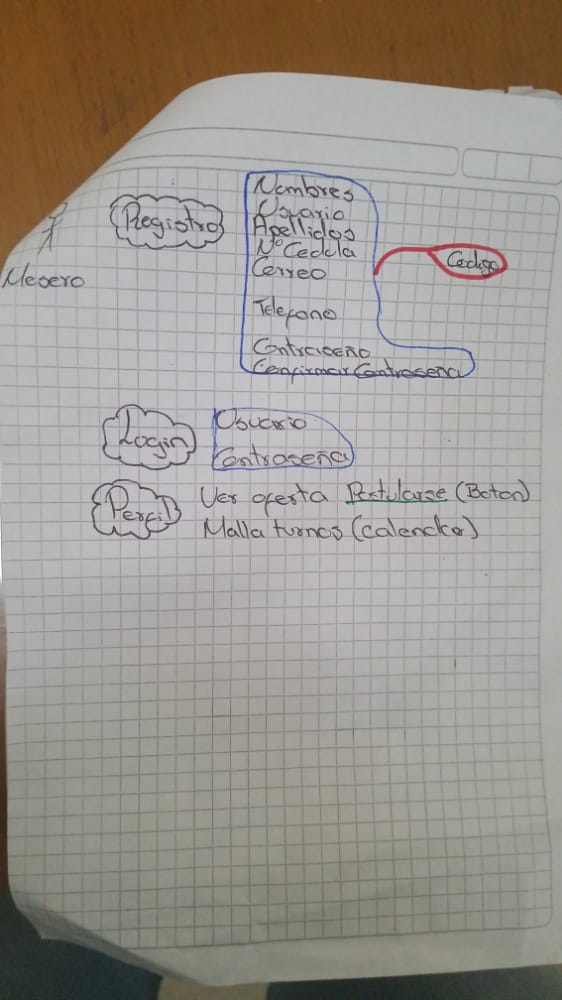 Mesero
Registro
Nombres
Usuario
Apellidos
Nº Cedula
Correo
Telefono
Contraseña
Confirmar Contraseña
Codigo
Login
Usuario
Contraseña
Perfil
Ver oferta Postularse (Boton)
Malla turnos (Calendario)